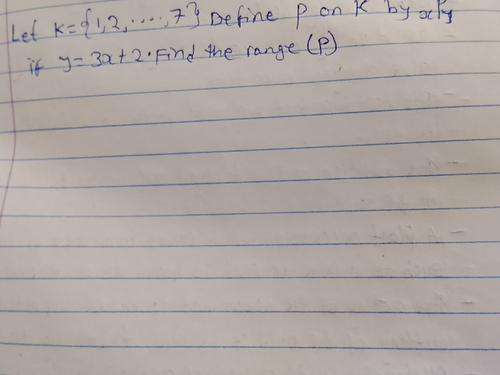 Let K={1,2,....,7} Define P on K by xPy
if y=3x+2. Find the range (P)